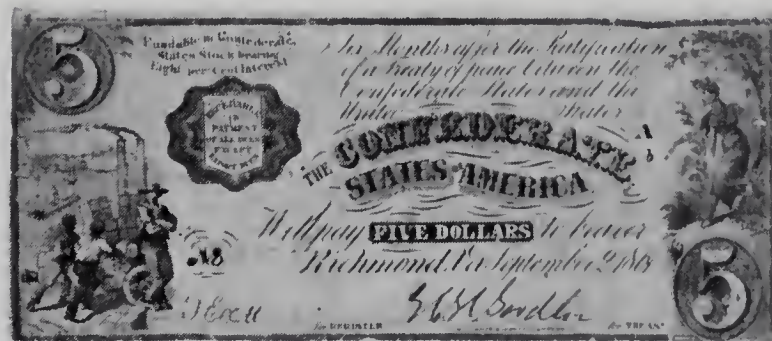 5
Fundable in Confederate
States Stock bearing
Eight per Cent Interest
Six Months after the Ratification
of a Treaty of peace between the
Confederate States and the
United States
RECEIVABLE
IN
PAYMENT
OF ALL DUES
EXCEPT
THE CONFEDERATE
STATES OF AMERICA
Will pay FIVE DOLLARS to bearer
Richmond, Va September 2, 1861
for REGISTER
for TREAS
5